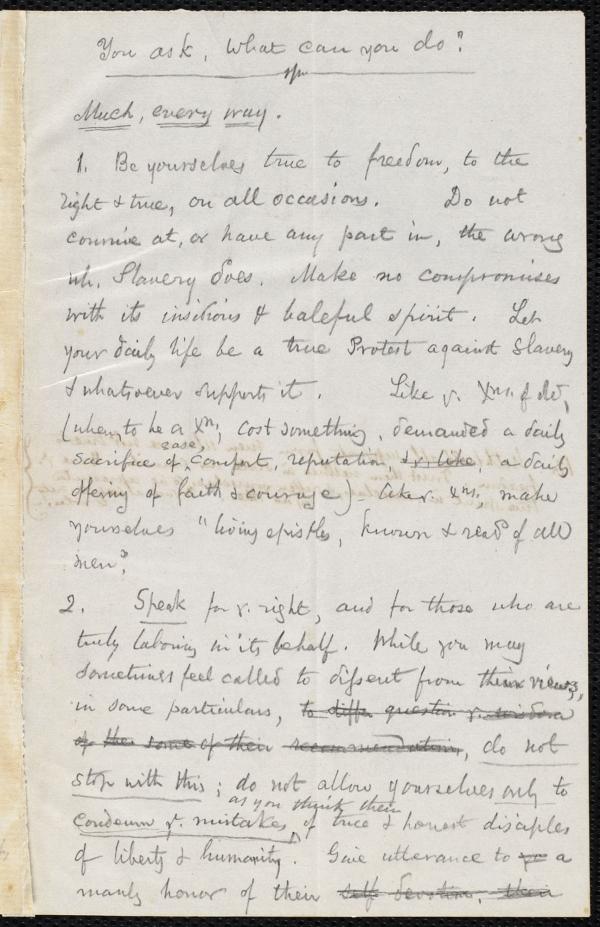 You ask, What can you do?
Much, every way.
1. Be yourselves true to freedom, to the
right & true, on all occasions. Do not
connive at, or have any part in, the wrong
wh. Slavery does. Make no compromises
with its insidious & baleful spirit. Let
your daily life be a true Protest against Slavery
& whatsoever supports it. Like y. Xns. of old,
(when, to be a Xn, cost something, demanded a daily
sacrifice of ease, comfort, reputation, & y. like, a daily
offering of faith & courage) – like y. Xns, make
yourselves "living epistles, known & read of all
men".
2. Speak for y. right, and for those who are
truly laboring in its behalf. While you may
sometimes feel called to dissent from their views,
in some particulars, to differ question y. wisdom
of the some of their recommendations, do not
stop with this; do not allow yourselves only to
as you think them
condemn y. mistakes, of true & honest disciples
of liberty & humanity. Give utterance to a
manly honor of their self devotion, their